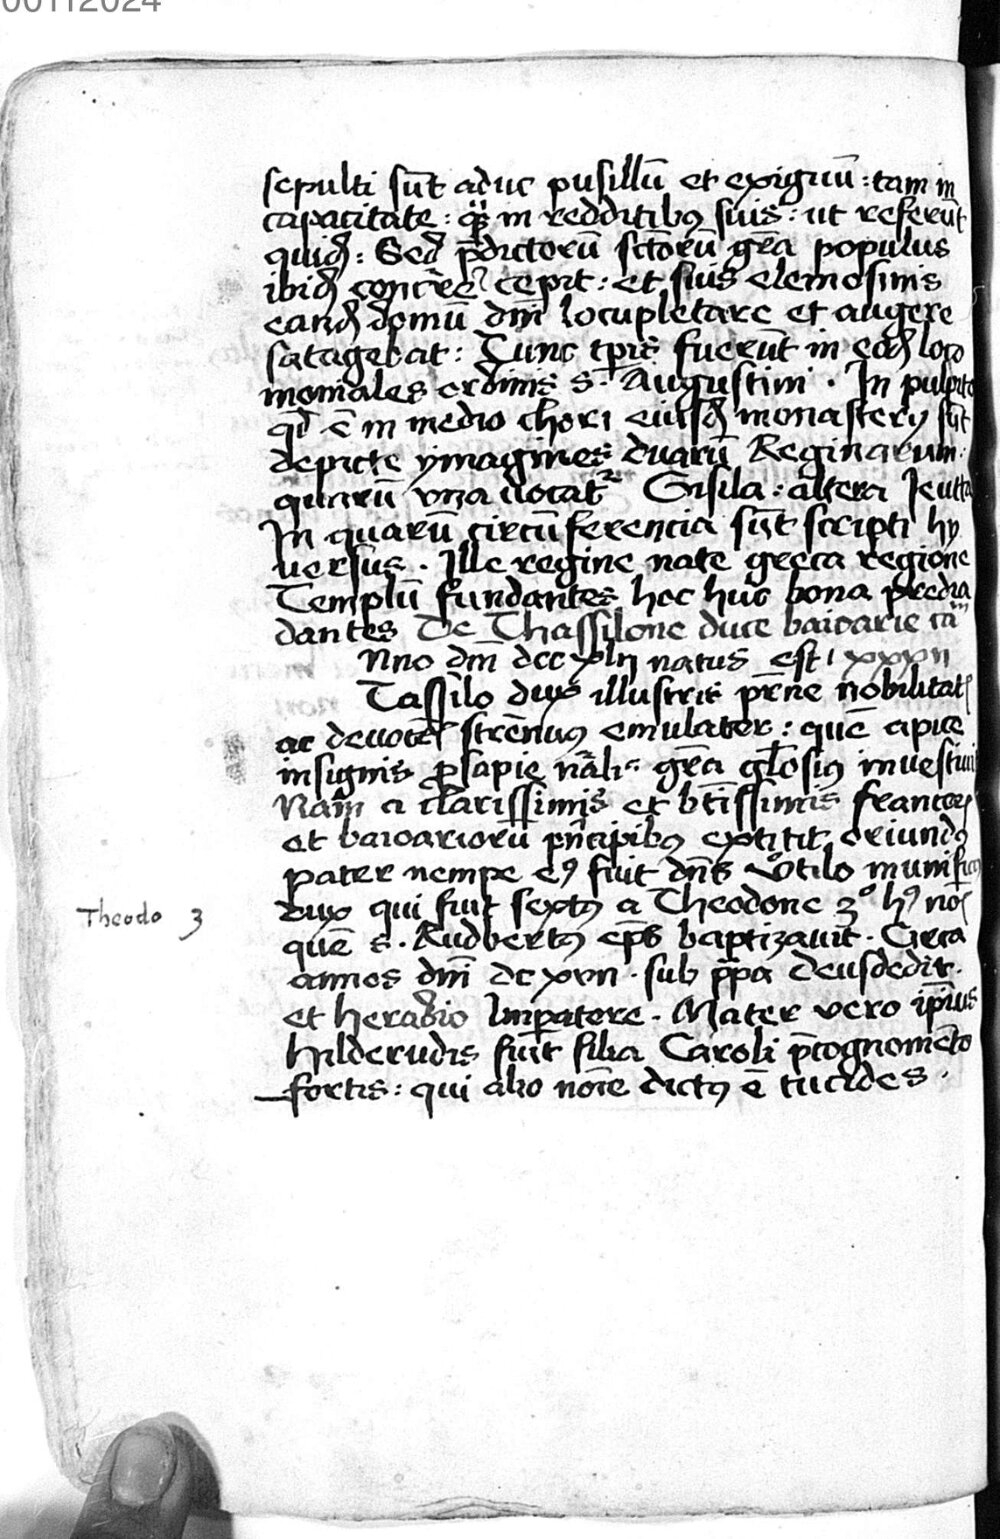 00112024
sepulti sūt aduc pusillū et exiguū : tam in
capacitate : qз in redditibꝰ suis : ut referūt
quidā : Sed p̄dictorū sctōrū gr̄a populus
ibidē cepit : et suis elemosinis
eandē domū dn̄i locupletare et augere
satagebat : Tunc tp̄is fuerūt in eodē loco
moniales ordinis s. Augustini . In pulpito
qd ē in medio chori eiusdē monasterij sūt
depicte ymagines duarū Reginarum :
quarū vna vocat Gisila : altera Jeutta
In quarū circūferencia sūt scripti hij
versus . Ille regine nate greca regione
Templū fundantes hoc huc bona predia
dantes De Thassilone duce baioarie cām
Nno dn̄i dcc xlij natus est xxxij
Tassilo dux illustris nobilitatꝭ
ac strēnuꝰ emulator : quē apice
insignis ꝓsapie gr̄a gl̄osiꝰ inuestiuit
Nam a clarissimis et btīssimis francorꝫ
et baioariorū pn̄cipibꝰ extitit oriundꝰ
pater nempe eꝰ fuit dn̄s vͦtilo munificꝰ
dux qui fuit sextꝰ a Theodone 3º hꝰ noīs
Theodo 3
quē s. Rudbertꝰ ep̄s baptizauit . Circa
annos dn̄i dc xvij . sub p̄pa deusdedit .
et heraclio Imperatore . Mater vero ip̄ius
hilderudis fuit filia Caroli p̄cognomēto
fortis : qui alio noīe dictꝰ ē tucides .